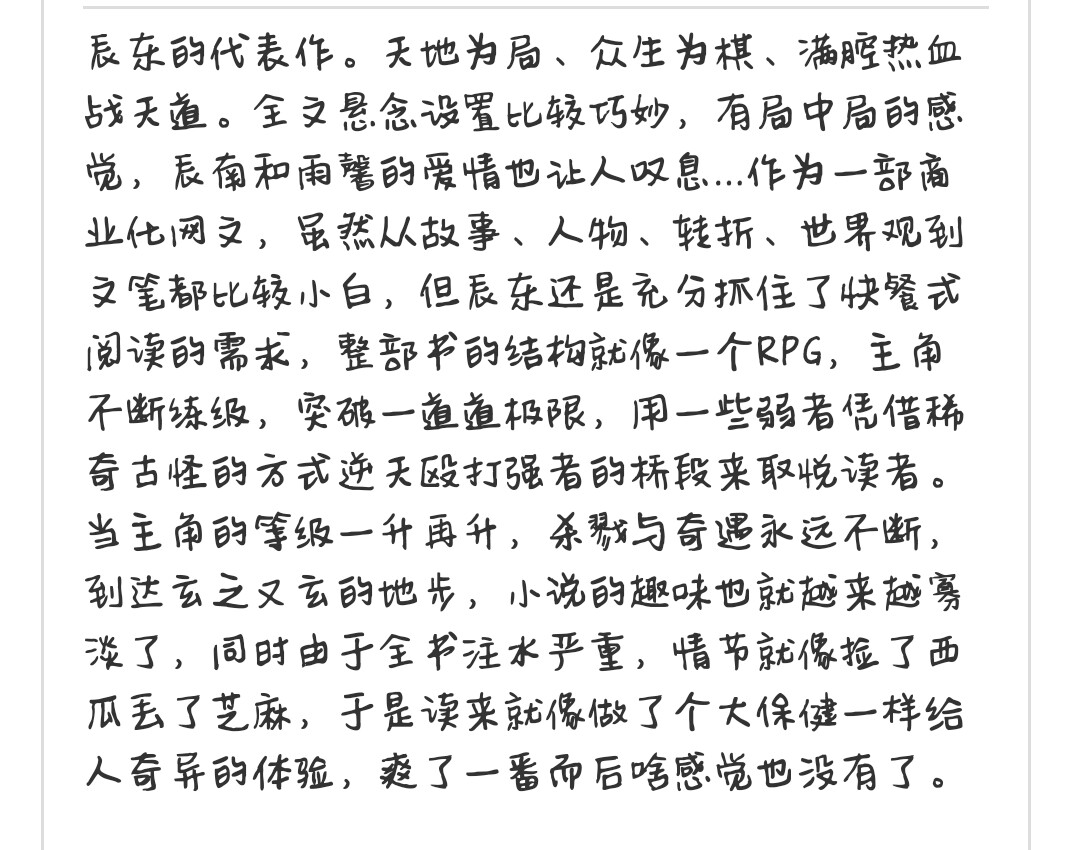 辰东的代表作。天地为局、众生为棋、满腔热血
战天道。全文悬念设置比较巧妙，有局中局的感
觉，辰南和雨馨的爱情也让人叹息...作为一部商
业化网文，虽然从故事、人物、转折、世界观到
文笔都比较小白，但辰东还是充分抓住了快餐式
阅读的需求，整部书的结构就像一个RPG，主角
不断练级，突破一道道极限，用一些弱者凭借稀
奇古怪的方式逆天殴打强者的桥段来取悦读者。
当主角的等级一升再升，杀戮与奇遇永远不断，
到达玄之又玄的地步，小说的趣味也就越来越寡
淡了，同时由于全书注水严重，情节就像捡了西
瓜丢了芝麻，于是读来就像做了个大保健一样给
人奇异的体验，爽了一番而后啥感觉也没有了。